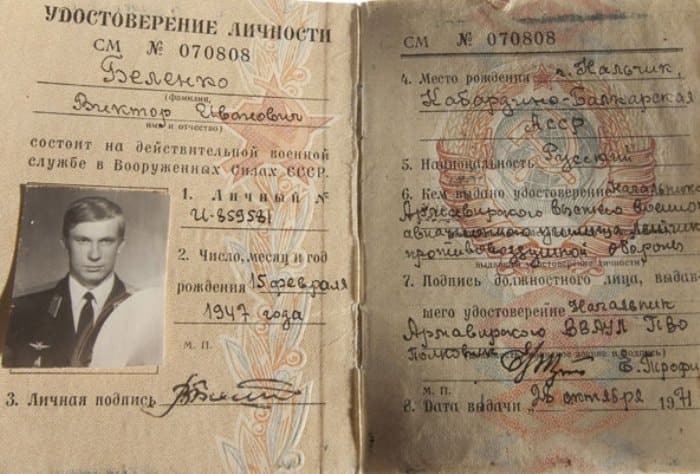 УДОСТОВЕРЕНИЕ ЛИЧНОСТИ
СМ № 070808
Беленко
(фамилия,
Виктор Иванович
имя и отчество)
состоит на действительной военной
службе в Вооруженных Силах СССР.
1. Личный №
И-859581
2. Число, месяц и год
рождения 15 февраля
1947 года
М. П.
3. Личная подпись
СМ № 070808
4. Место рождения г. Нальчик,
Кабардино-Балкарская
АССР
5. Национальность Русский
6. Кем выдано удостоверение Начальник
Армавирского высшего военно
авиационного училища летчик
противовоздушной обороны
7. Подпись должностного лица, выдав
шего удостоверение Начальник
Армавирского ВВАУЛ ПВО
полковник Е. Трофи
М. П.
8. Дата выдачи „28 октября 1971